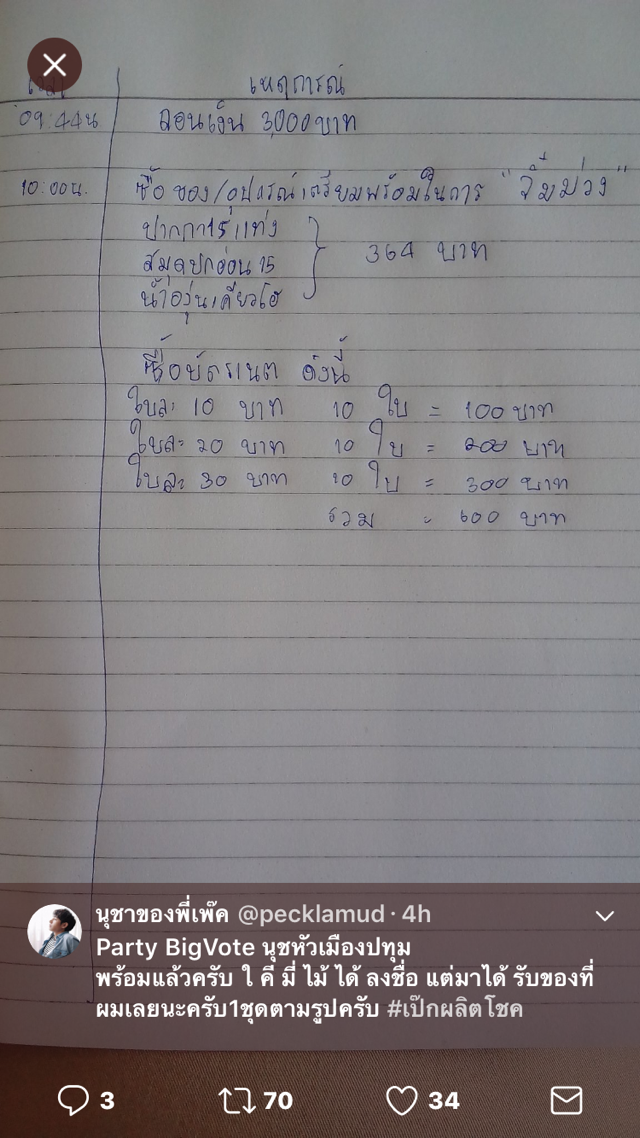 เวลา เหตุการณ์
09:44น ถอนเงิน 3,000บาท
10:00น. ซื้อของ/อุปกรณ์เตรียมพร้อมในการ "จิ้มม่วง"
ปากกา15แท่ง
สมุดปกอ่อน 15 364 บาท
น้ำองุ่นเคียวโฮ
ซื้อบัตรเนต ดังนี้
ใบละ 10 บาท 10 ใบ = 100 บาท
ใบละ 20 บาท 10 ใบ = 200 บาท
ใบละ 30 บาท 10 ใบ = 300 บาท
รวม = 600 บาท
นุชาของพี่เพ๊ค @pecklamud · 4h
Party BigVote นุชหัวเมืองปทุม
พร้อมแล้วครับ ใ คี มี่ ไม้ ได้ ลงชื่อ แต่มาได้ รับของที่
ผมเลยนะครับ1ชุดตามรูปครับ #เป๊กผลิตโชค
3 70 34